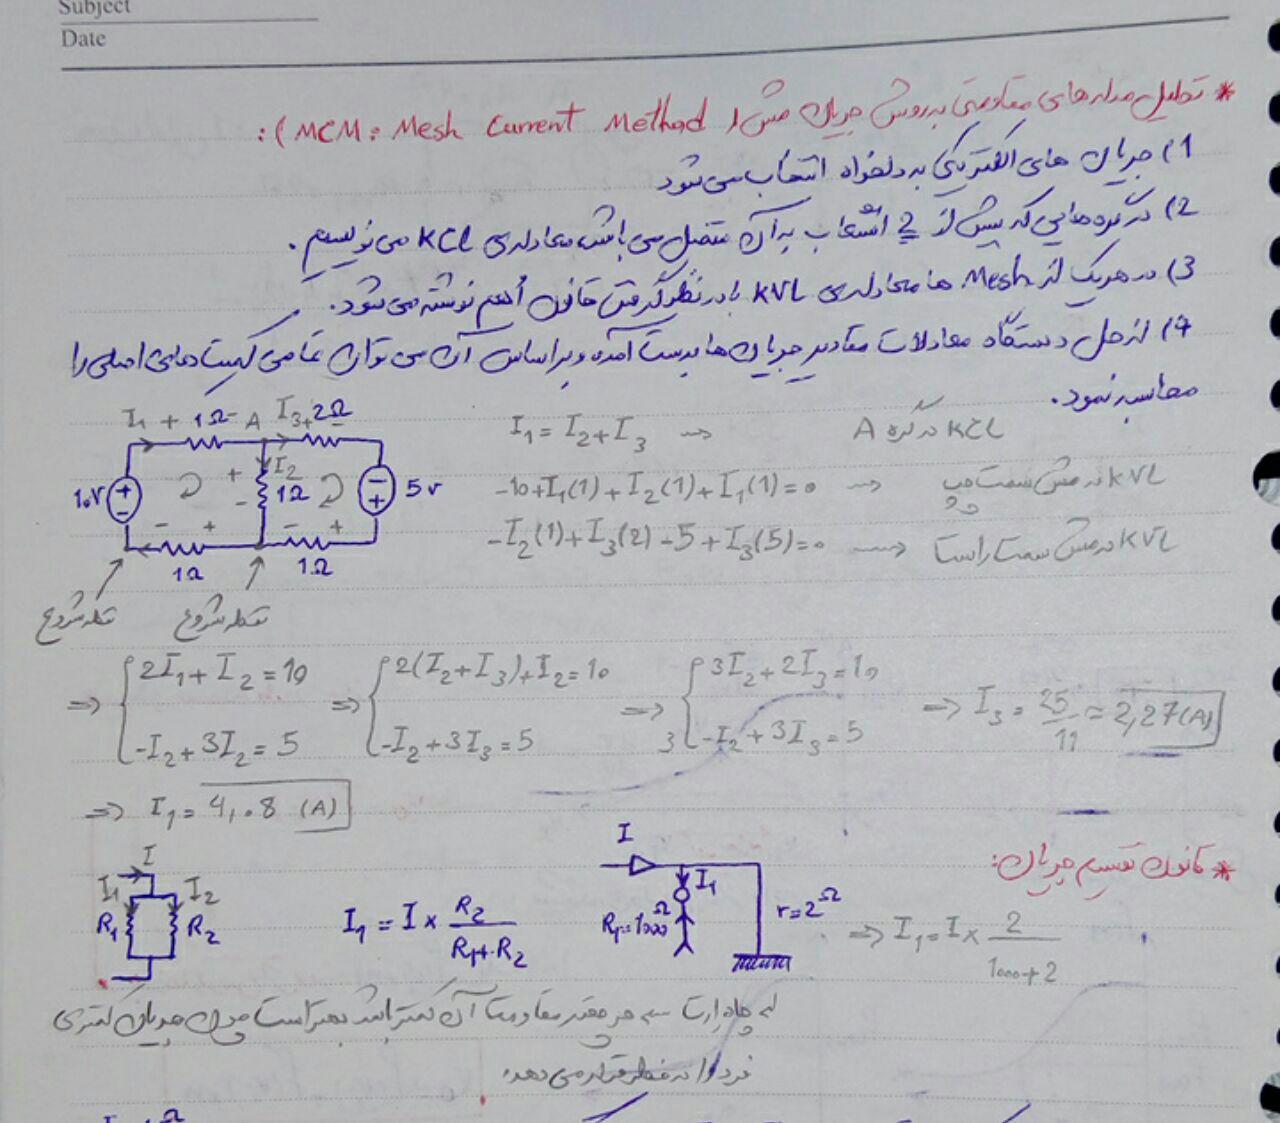 Subject
Date
* تحلیل مدارهای مقاومتی به روش جریان مش (MCM: Mesh Current Method):
1) جریان های الکتریکی به دلخواه انتخاب می شود
2) در گره هایی که بیش از 2 انشعاب به آن متصل می باشد، معادله ی KCL می نویسیم.
3) در هریک از Mesh ها معادله ی KVL با در نظر گرفتن قانون اُهم نوشته می شود.
4) از حل دستگاه معادلات مقادیر جریان ها بدست آمده و براساس آن می توان تمامی کمیت های اصلی را
محاسبه نمود.
I₁ + 1Ω - A I₃ + 2Ω
I₂
10V + - + - 1Ω - + 5v
- + - +
1Ω 1Ω
نقطه شروع نقطه شروع
I₁ = I₂ + I₃ ⇝ KCL در گره A
-10+I₁(1)+I₂(1)+I₁(1)=0 ⇝ KVL در مش سمت چپ
-I₂(1)+I₃(2)-5+I₃(5)=0 ⇝ KVL در مش سمت راست
⇒ {2I₁+I₂=10 ⇒ {2(I₂+I₃)+I₂=10 ⇒ {3I₂+2I₃=10 ⇒ I₃ = 25/11 = 2,27(A)
-I₂+3I₂=5 -I₂+3I₃=5 3 -I₂+3I₃=5
⇒ I₁ = 4,08 (A)
* قانون تقسیم جریان:
I
I₁ I₂
R₁ R₂
I₁ = I × R₂/(R₁+R₂)
I
I₁
R₁=1000Ω r=2Ω
⇒ I₁ = I × 2/(1000+2)
چاه ارت هر چقدر مقاومت آن کمتر باشد بهتر است چون جریان کمتری
فرد را در خطر قرار می دهد.